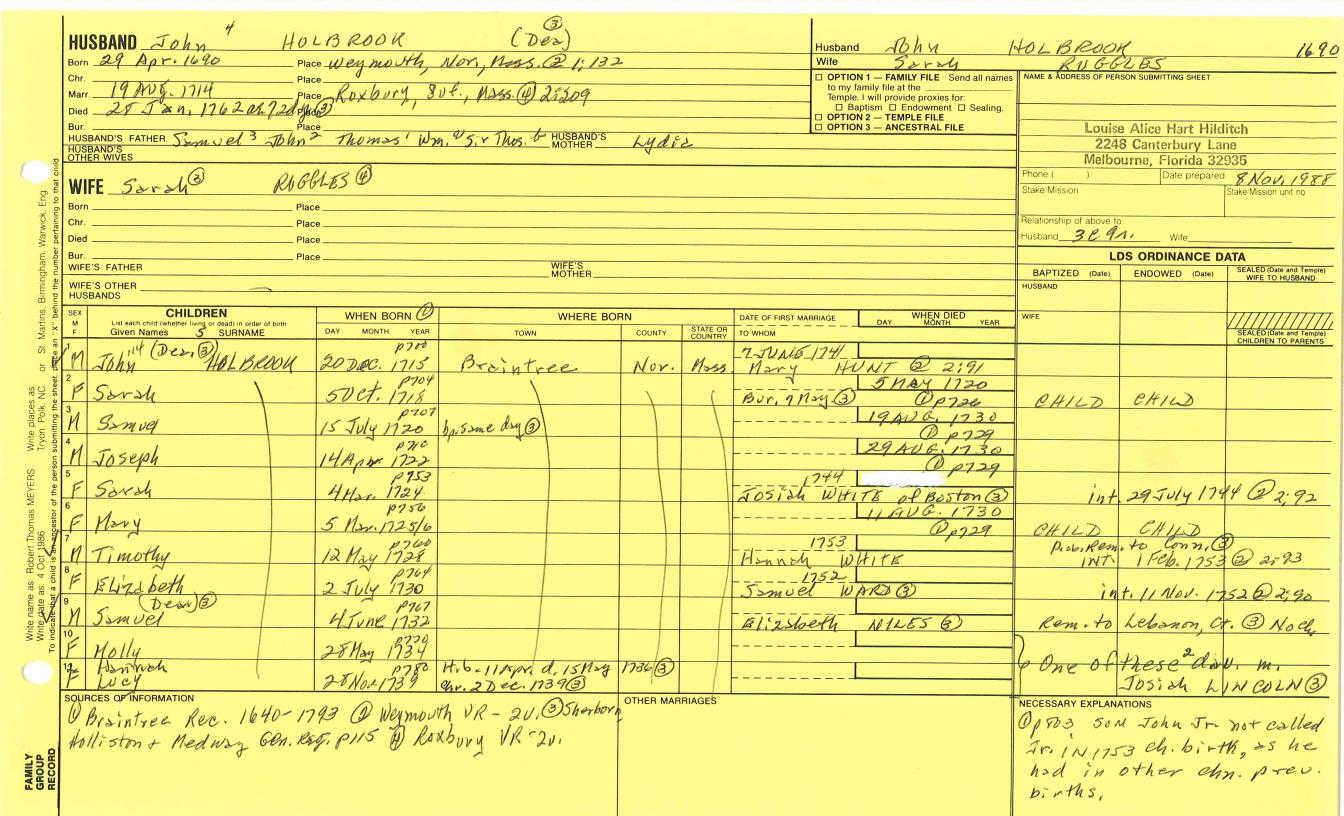 HUSBAND John 4 HOLBROOK (Dea) ③
Born 29 Apr. 1690 Place Weymouth, Nor., Mass. ② 1:132
Chr. Place
Marr 19 AUG. 1714 Place Roxbury, Suf., Mass. ④ 2:209
Died 28 Jan, 1762 Place ③
Bur. Place
HUSBAND'S FATHER Samuel 3 John 2 Thomas 1 Wm. Thos. HUSBAND'S MOTHER Lydia
HUSBAND'S OTHER WIVES
WIFE Sarah ③ RUGGLES ④
Born Place
Chr. Place
Died Place
Bur. Place
WIFE'S FATHER WIFE'S MOTHER
WIFE'S OTHER HUSBANDS
Husband John HOLBROOK 1690
Wife Sarah RUGGLES
☐ OPTION 1 — FAMILY FILE Send all names
to my family file at the
Temple. I will provide proxies for:
☐ Baptism ☐ Endowment ☐ Sealing.
☐ OPTION 2 — TEMPLE FILE
☐ OPTION 3 — ANCESTRAL FILE
NAME & ADDRESS OF PERSON SUBMITTING SHEET
Louise Alice Hart Hilditch
2248 Canterbury Lane
Melbourne, Florida 32935
Phone ( ) Date prepared 8 Nov. 1988
Stake Mission Stake/Mission unit no
Relationship of above to
Husband 3C gr. Wife
LDS ORDINANCE DATA
BAPTIZED (Date) ENDOWED (Date) SEALED (Date and Temple) WIFE TO HUSBAND
HUSBAND
WIFE
SEALED (Date and Temple) CHILDREN TO PARENTS
SEX M F CHILDREN WHEN BORN ① WHERE BORN DATE OF FIRST MARRIAGE WHEN DIED
List each child (whether living or dead) in order of birth
Given Names 5 SURNAME DAY MONTH YEAR TOWN COUNTY STATE OR COUNTRY TO WHOM DAY MONTH YEAR
1 M John (Dea. ③) HOLBROOK 20 DEC. 1715 p700 Braintree Nor. Mass. 7 JUNE 1741 Mary HUNT ② 2:91
2 F Sarah 5 Oct. 1718 p704 Bur. 7 May ③ 5 MAY 1720 ① p726 CHILD CHILD
3 M Samuel 15 July 1720 p707 bp. same day ③ 19 AUG. 1730 ① p729
4 M Joseph 14 Apr. 1722 p710 29 AUG. 1730 ① p729
5 F Sarah 4 Mar. 1724 p753 1744 Josiah WHITE of Boston ③ int. 29 July 1744 ② 2:92
6 F Mary 5 Mar. 1725/6 p756 11 AUG. 1730 ① p729 CHILD CHILD
7 M Timothy 12 May 1728 p760 1753 Hannah WHITE Prob. Rem. to Conn. ③ INT. 1 Feb. 1753 ② 2:93
8 F Elizabeth 2 July 1730 p764 1752 Samuel WARD ③ int. 11 Nov. 1752 ② 2:90
9 M Samuel (Dea.) ③ 4 June 1732 p767 Elizabeth NILES ③ Rem. to Lebanon, Ct. ③ No ch.
10 F Molly 28 May 1734
11 F Hannah Lucy 28 Nov. 1739 p780 H. b. 11 Apr. d. 15 May 1736 ③ chr. 2 Dec. 1739 ③
One of these 2 dau. m. Josiah LINCOLN ③
SOURCES OF INFORMATION
① Braintree Rec. 1640-1793 ② Weymouth VR - 2v. ③ Sherborn,
Holliston + Medway Gen. Reg. p115 ④ Roxbury VR - 2v.
OTHER MARRIAGES
NECESSARY EXPLANATIONS
① p803 son John Jr. not called
Jr. IN 1753 ch. birth, as he
had in other chn. prev.
births.
Write name as: Robert Thomas MEYERS Write places as: Tryon, Polk, NC or St. Martins, Birmingham, Warwick, Eng
Write date as: 4 Oct 1986
To indicate that a child is an ancestor of the person submitting the sheet, place an "X" behind the number pertaining to that child
FAMILY
GROUP
RECORD